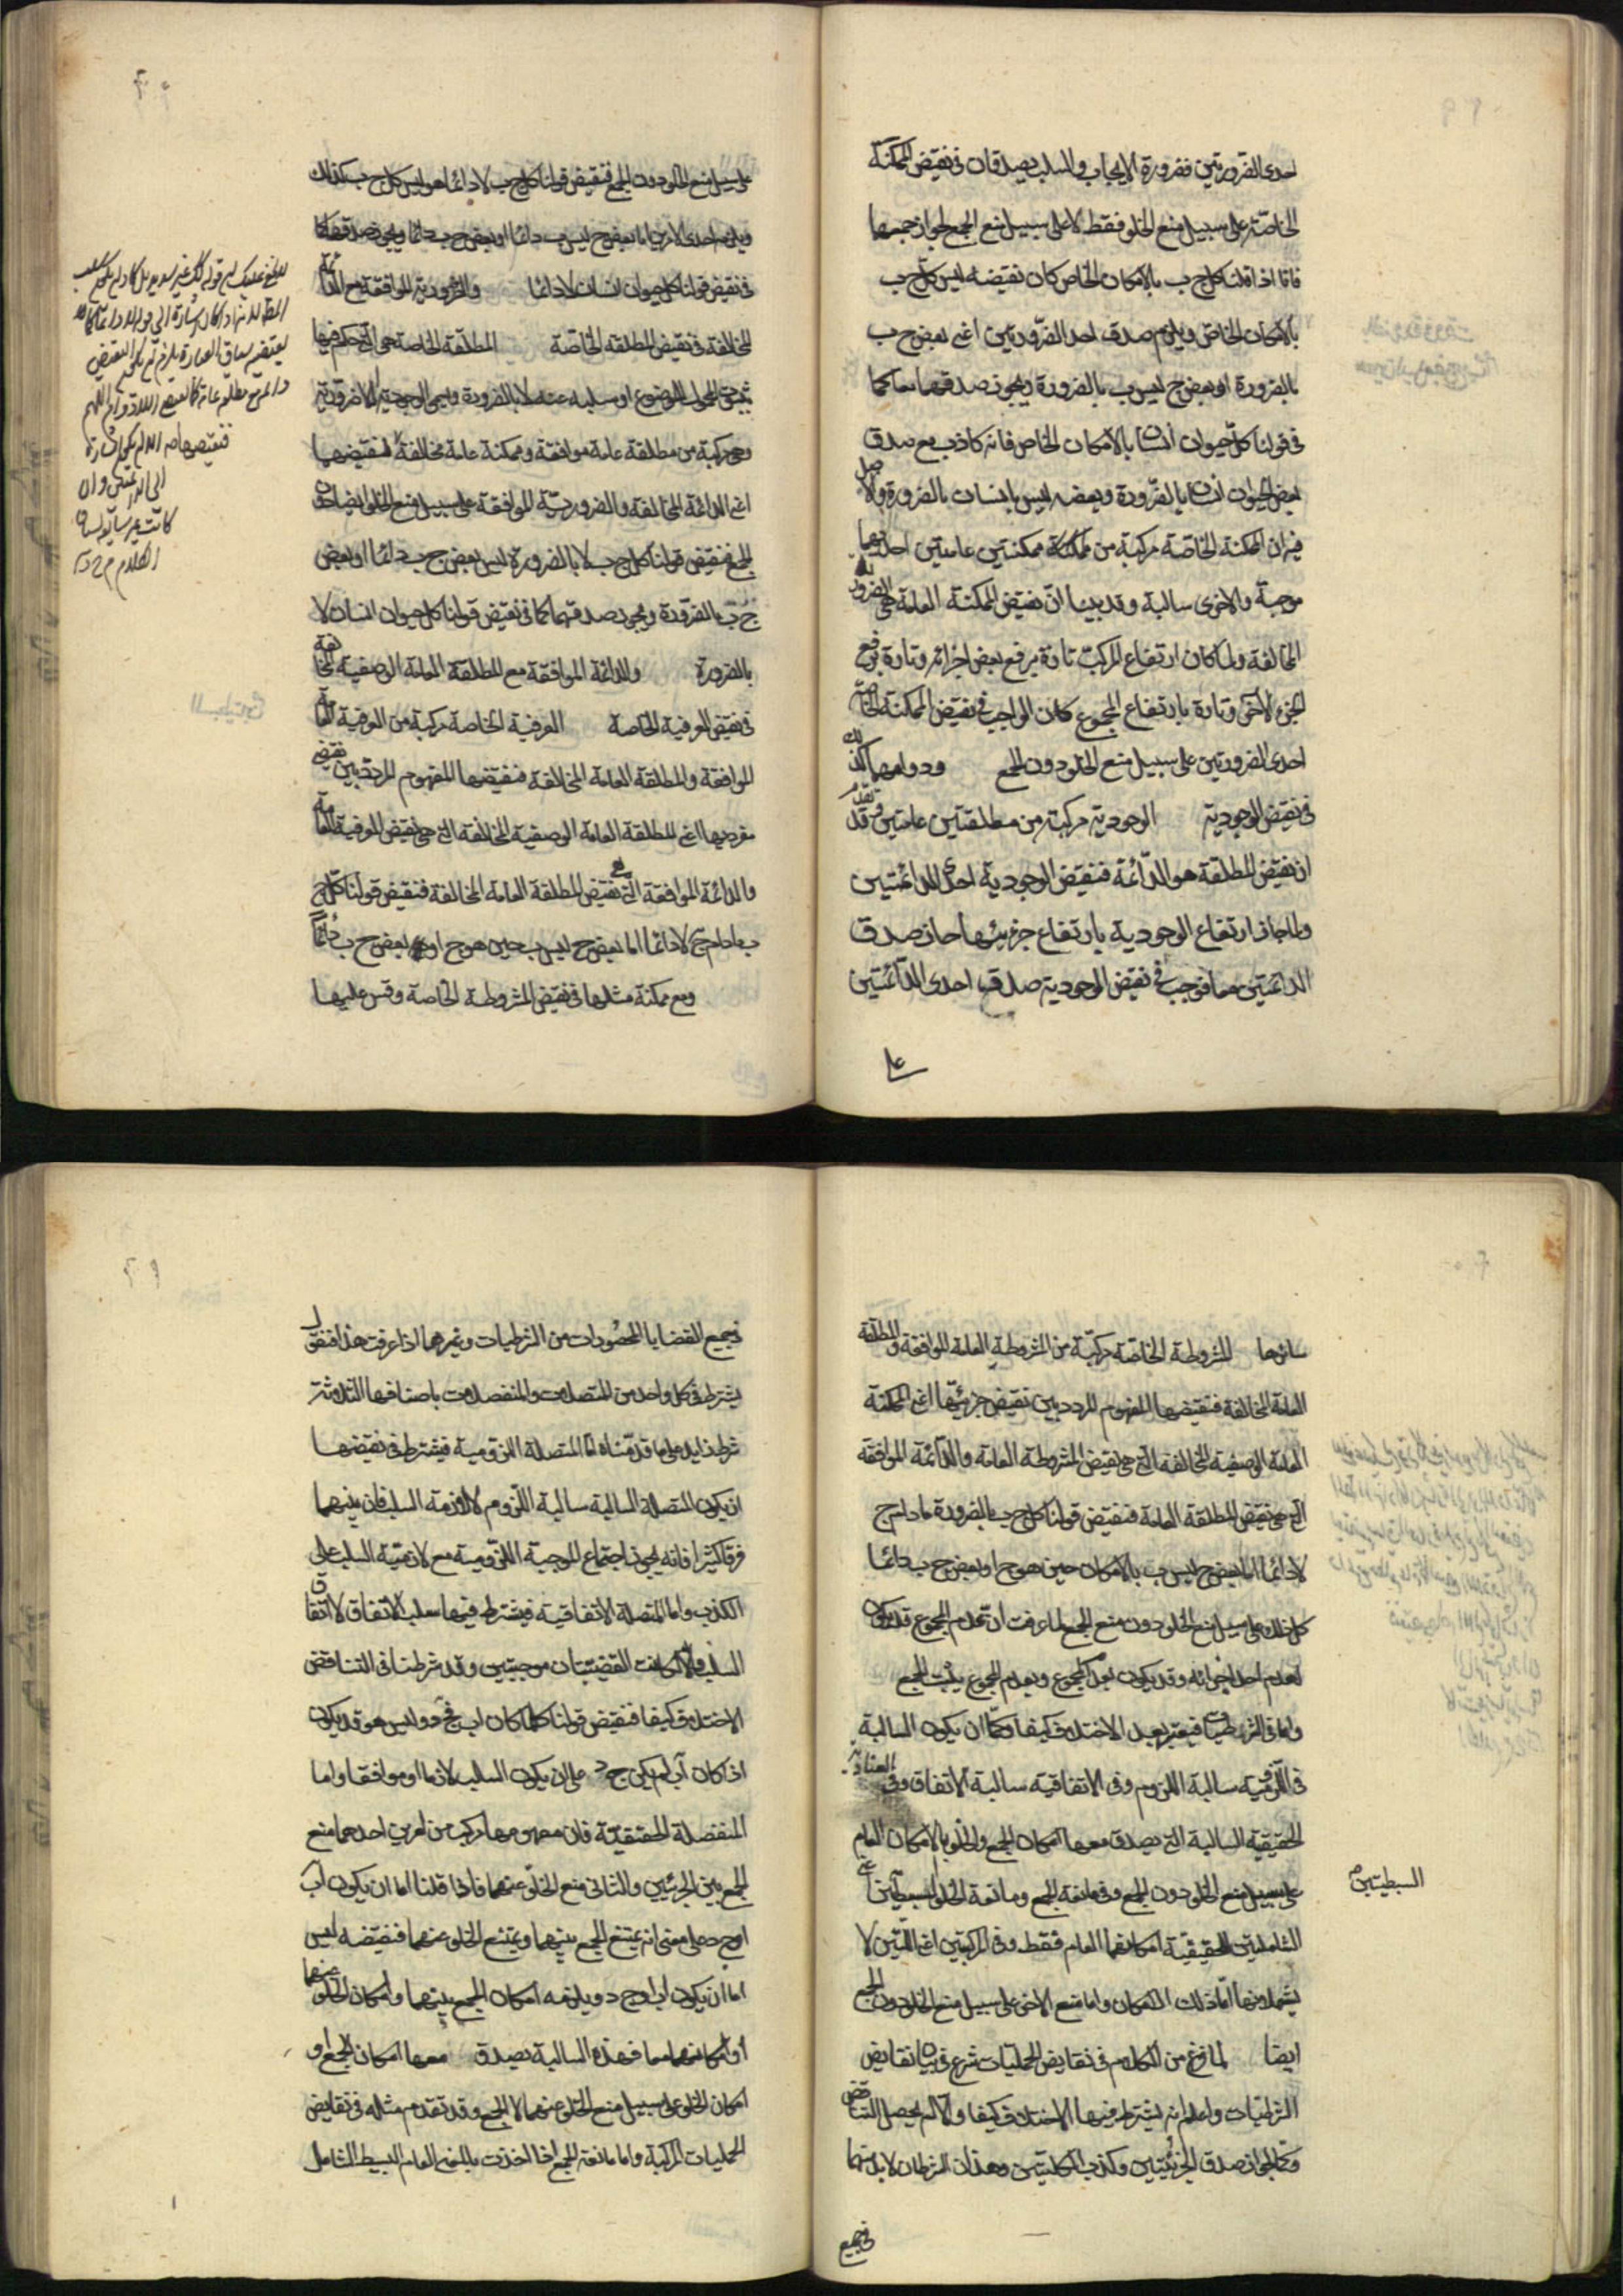 احدى الضرورتين فضرورة الايجاب والسلب يصدقان فى نقيض الممكنة
الخاصة على سبيل منع الخلو فقط لا على سبيل منع الجمع لجواز جمعهما
فانا اذا قلنا كل ج ب بالامكان الخاص كان نقيضه ليس كل ج ب
بالامكان الخاص ويلزم صدق احد الضرورتين اعنى بعض ج ب
بالضرورة او بعض ج ليس ب بالضرورة ويجوز صدقهما معا كما
فى قولنا كل حيوان انسان بالامكان الخاص فانه كاذب مع صدق
بعض الحيوان انسان بالضرورة وبعضه ليس بانسان بالضرورة والاصل
فيه ان الممكنة الخاصة مركبة من ممكنتين عامتين احديهما
موجبة والاخرى سالبة وقد بينا ان نقيض الممكنة العامة هى الضرورية
المخالفة ولما كان ارتفاع المركب تارة برفع بعض اجزائه وتارة برفع
الجزء الاخر وتارة بارتفاع المجموع كان الواجب فى نقيض الممكنة الخاصة
احدى الضرورتين على سبيل منع الخلو دون الجمع ودوامهما كذلك
فى نقيض الوجودية الوجودية مركبة من مطلقتين عامتين وقد تقدم
ان نقيض المطلقة هو الدائمة فنقيض الوجودية احدى الدائمتين
ولما جاز ارتفاع الوجودية بارتفاع جزئيها جاز صدق
الدائمتين معا فوجب فى نقيض الوجودية صدق احدى الدائمتين
على
على سبيل منع الخلو دون الجمع فنقيض قولنا كل ج ب لا دائما هو ليس كل ج ب كذلك
ويلزم احدى الامرين اما بعض ج ليس ب دائما او بعض ج ب دائما ويجوز صدقهما كما
فى نقيض قولنا كل حيوان انسان لا دائما والضرورية الموافقة مع الدائمة
المخالفة فى نقيض المطلقة الخاصة المطلقة الخاصة هى التى حكم فيها
بثبوت المحمول للموضوع او سلبه عنه لا بالضرورة وتسمى الوجودية اللاضرورية
وهى مركبة من مطلقة عامة موافقة وممكنة عامة مخالفة فنقيضهما
اعنى الدائمة المخالفة والضرورية الموافقة على سبيل منع الخلو ايضا دون
الجمع فنقيض قولنا كل ج ب لا بالضرورة ليس بعض ج ب دائما او بعض
ج ب بالضرورة ويجوز صدقهما كما فى نقيض قولنا كل حيوان انسان لا
بالضرورة والدائمة الموافقة مع المطلقة العامة الوصفية المخالفة
فى نقيض العرفية الخاصة العرفية الخاصة مركبة من العرفية العامة
الموافقة والمطلقة العامة المخالفة فنقيضها المفهوم المردد بين نقيض
مفرديها اعنى المطلقة العامة الوصفية المخالفة التى هى نقيض العرفية العامة
والدائمة الموافقة التى هى نقيض المطلقة العامة المخالفة فنقيض قولنا كل ج
ب مادام ج لا دائما اما بعض ج ليس ب حين هو ج او بعض ج ب دائما
ومع ممكنة مثلها فى نقيض المشروطة الخاصة وقس عليها
سائرها المشروطة الخاصة مركبة من المشروطة العامة الموافقة والمطلقة
العامة المخالفة فنقيضها المفهوم المردد بين نقيض جزئيها اعنى الممكنة
العامة الوصفية المخالفة التى هى نقيض المشروطة العامة والدائمة الموافقة
التى هى نقيض المطلقة العامة فنقيض قولنا كل ج ب بالضرورة مادام ج
لا دائما اما بعض ج ليس ب بالامكان حين هو ج او بعض ج ب دائما
كل ذلك على سبيل منع الخلو دون منع الجمع لما عرفت ان عدم المجموع قد يكون
لعدم احد اجزائه وقد يكون بعدم المجموع وبعدم المجموع يثبت الجمع
واما فى الشرطيات فيعتبر بعد الاختلاف كيفا وكما ان يكون السالبة
فى اللزومية سالبة اللزوم وفى الاتفاقية سالبة الاتفاق وفى العنادية
الحقيقية السالبة التى يصدق معها امكان الجمع والخلو بالامكان العام
على سبيل منع الخلو دون الجمع وفى مانعة الجمع ومانعة الخلو البسيطتين اعنى
السبطيتين
الشاملتين للحقيقية امكانهما العام فقط وفى المركبتين اعنى اللتين لا
يشملانها اما ذلك الامكان واما منع الاخر على سبيل منع الخلو دون الجمع
ايضا لما فرغ من الكلام فى نقايض الحمليات شرع فى بيان نقايض
الشرطيات واعلم انه يشترط فيها الاختلاف كيفا والا لم يحصل التناقض
وكما لجواز صدق الجزئيتين وكذب الكليتين وهذان الشرطان لا بد منهما
فى جميع
فى جميع القضايا المحصورات من الشرطيات وغيرها اذا عرفت هذا فنقول
يشترط فى كل واحد من المتصلات والمنفصلات باصنافها الثلاثة
شرط زايد على ما قدمناه اما المتصلة اللزومية فيشترط فى نقيضها
ان يكون المتصلة السالبة سالبة اللزوم لا لازمة السلب فان بينهما
فرقا كثيرا فانه يجوز اجتماع الموجبة اللزومية مع لازمية السلب على
الكذب واما المتصلة الاتفاقية فيشترط فيها سلب الاتفاق لا اتفاق
السلب والا لكانت القضيتان موجبتين وقد شرطنا فى التناقض
الاختلاف كيفا فنقيض قولنا كلما كان اب فج د وليس هو قد يكون
اذا كان اب لم يكن ج د على ان يكون السلب لازما او موافقا واما
المنفصلة الحقيقية فان مفهومها مركب من امرين احدهما منع
الجمع بين الجزئيين والثانى منع الخلو عنهما فاذا قلنا اما ان يكون اب
او ج د على معنى انه يمتنع الجمع بينهما ويمتنع الخلو عنهما فنقيضه ليس
اما ان يكون اب او ج د ويلزمه امكان الجمع بينهما وامكان الخلو عنهما
او امكانهما معا فهذه السالبة يصدق معها امكان الجمع او
امكان الخلو على سبيل منع الخلو عنهما لا الجمع وقد تقدم مثله فى نقايض
الحمليات المركبة واما مانعة الجمع اذا اخذت بالمعنى العام البسيط الشامل